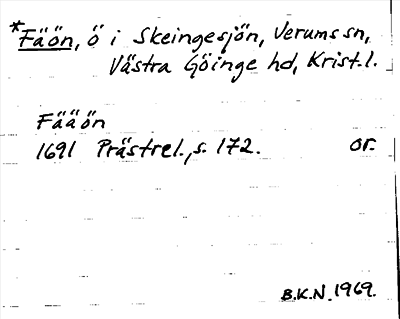 *Fäön, ö i Skeingesjön, Verums sn,
Västra Göinge hd, Krist.l.
Fääön
1691 Prästrel., s. 172. or.
B.K.N. 1969.